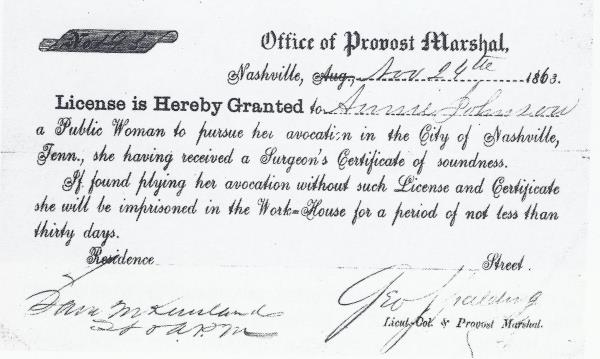 Office of Provost Marshal,
Nashville, Aug., Nov 24th 1863.
License is Hereby Granted to Annie Johnson
a Public Woman to pursue her avocation in the City of Nashville,
Tenn., she having received a Surgeon's Certificate of soundness.
If found plying her avocation without such License and Certificate
she will be imprisoned in the Work=House for a period of not less than
thirty days.
Residence Street
Geo Spalding
Lieut.-Col. & Provost Marshal.